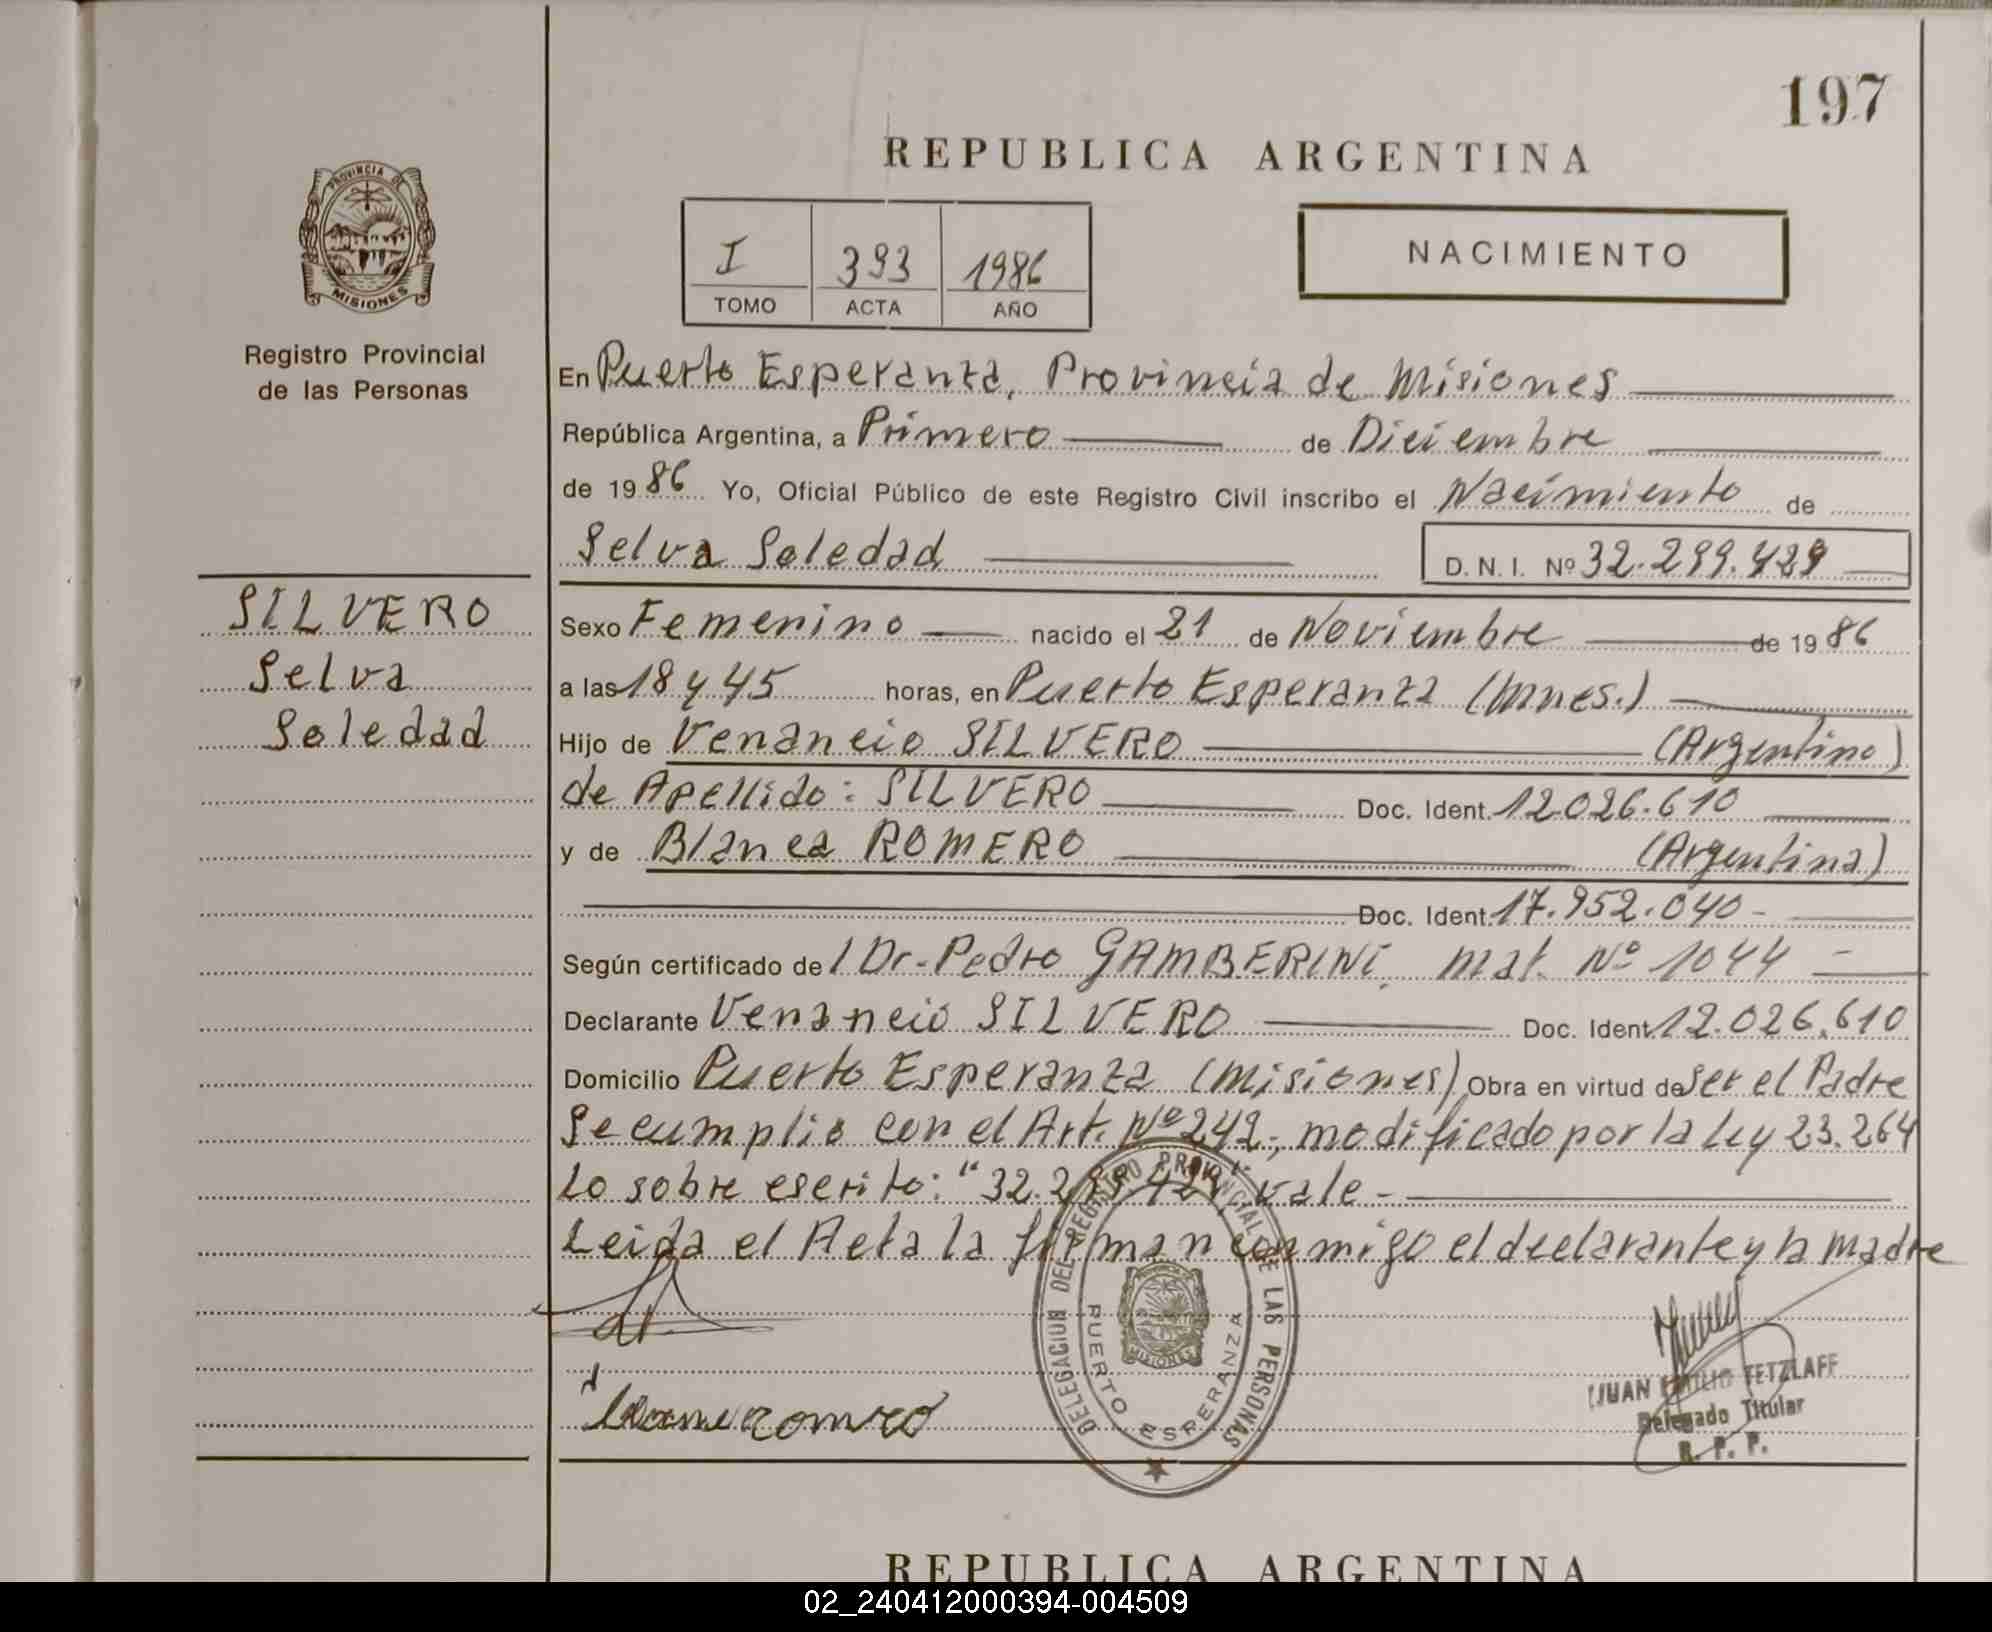 197
REPUBLICA ARGENTINA
PROVINCIA DE
MISIONES
Registro Provincial
de las Personas
I 393 1986
TOMO ACTA AÑO
NACIMIENTO
En Puerto Esperanza, Provincia de Misiones
República Argentina, a Primero de Diciembre
de 1986 Yo, Oficial Público de este Registro Civil inscribo el Nacimiento de
Selva Soledad D. N. I. Nº 32.299.429
SILVERO
Selva
Soledad
Sexo Femenino nacido el 21 de Noviembre de 1986
a las 18 y 45 horas, en Puerto Esperanza (Mnes.)
Hijo de Venancio SILVERO (Argentino)
de Apellido: SILVERO Doc. Ident. 12.026.610
y de Blanca ROMERO (Argentina)
Doc. Ident. 17.952.040-
Según certificado de l Dr. Pedro GAMBERINI, mat. Nº 1044 -
Declarante Venancio SILVERO Doc. Ident. 12.026.610
Domicilio Puerto Esperanza (Misiones) Obra en virtud de ser el Padre
Se cumplio con el Art. Nº 242, modificado por la Ley 23.264
Lo sobre escrito: "32.299.429" vale-
Leida el Acta la firman conmigo el declarante y la madre
DELEGACION DEL REGISTRO PROVINCIAL DE LAS PERSONAS
PUERTO ESPERANZA
MISIONES
JUAN EMILIO TETZLAFF
Delegado Titular
R. P. P.
REPUBLICA ARGENTINA
02_240412000394-004509